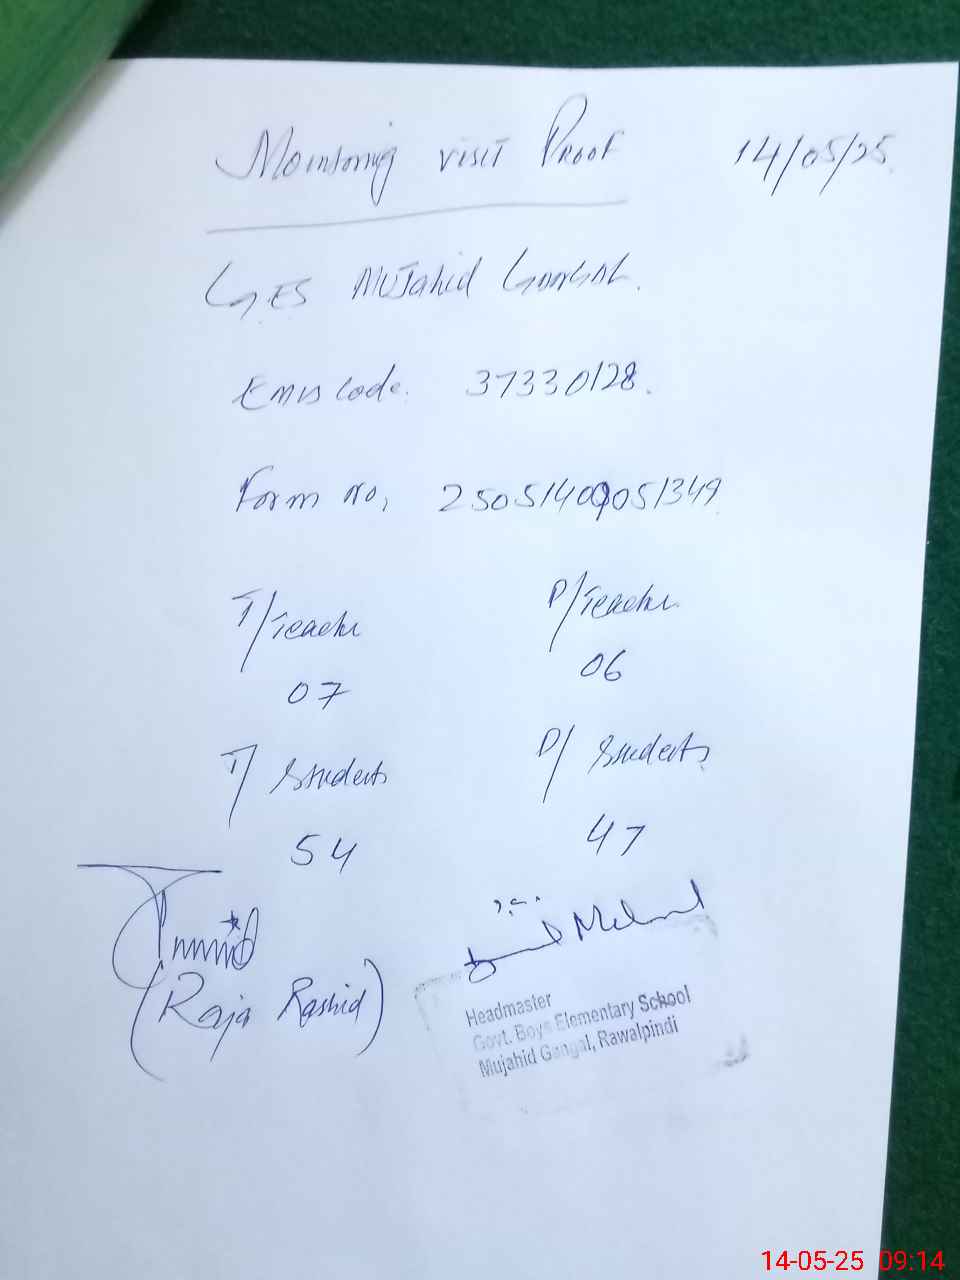 Monitoring visit Proof 14/05/25
GES Mujahid Gangal.
Emis code. 37330128.
Form no, 25051409051349
T/Teacher P/Teacher
07 06
T/ Students P/ Students
54 47
(Raja Rashid)
Headmaster
Govt. Boys Elementary School
Mujahid Gangal, Rawalpindi
14-05-25 09:14